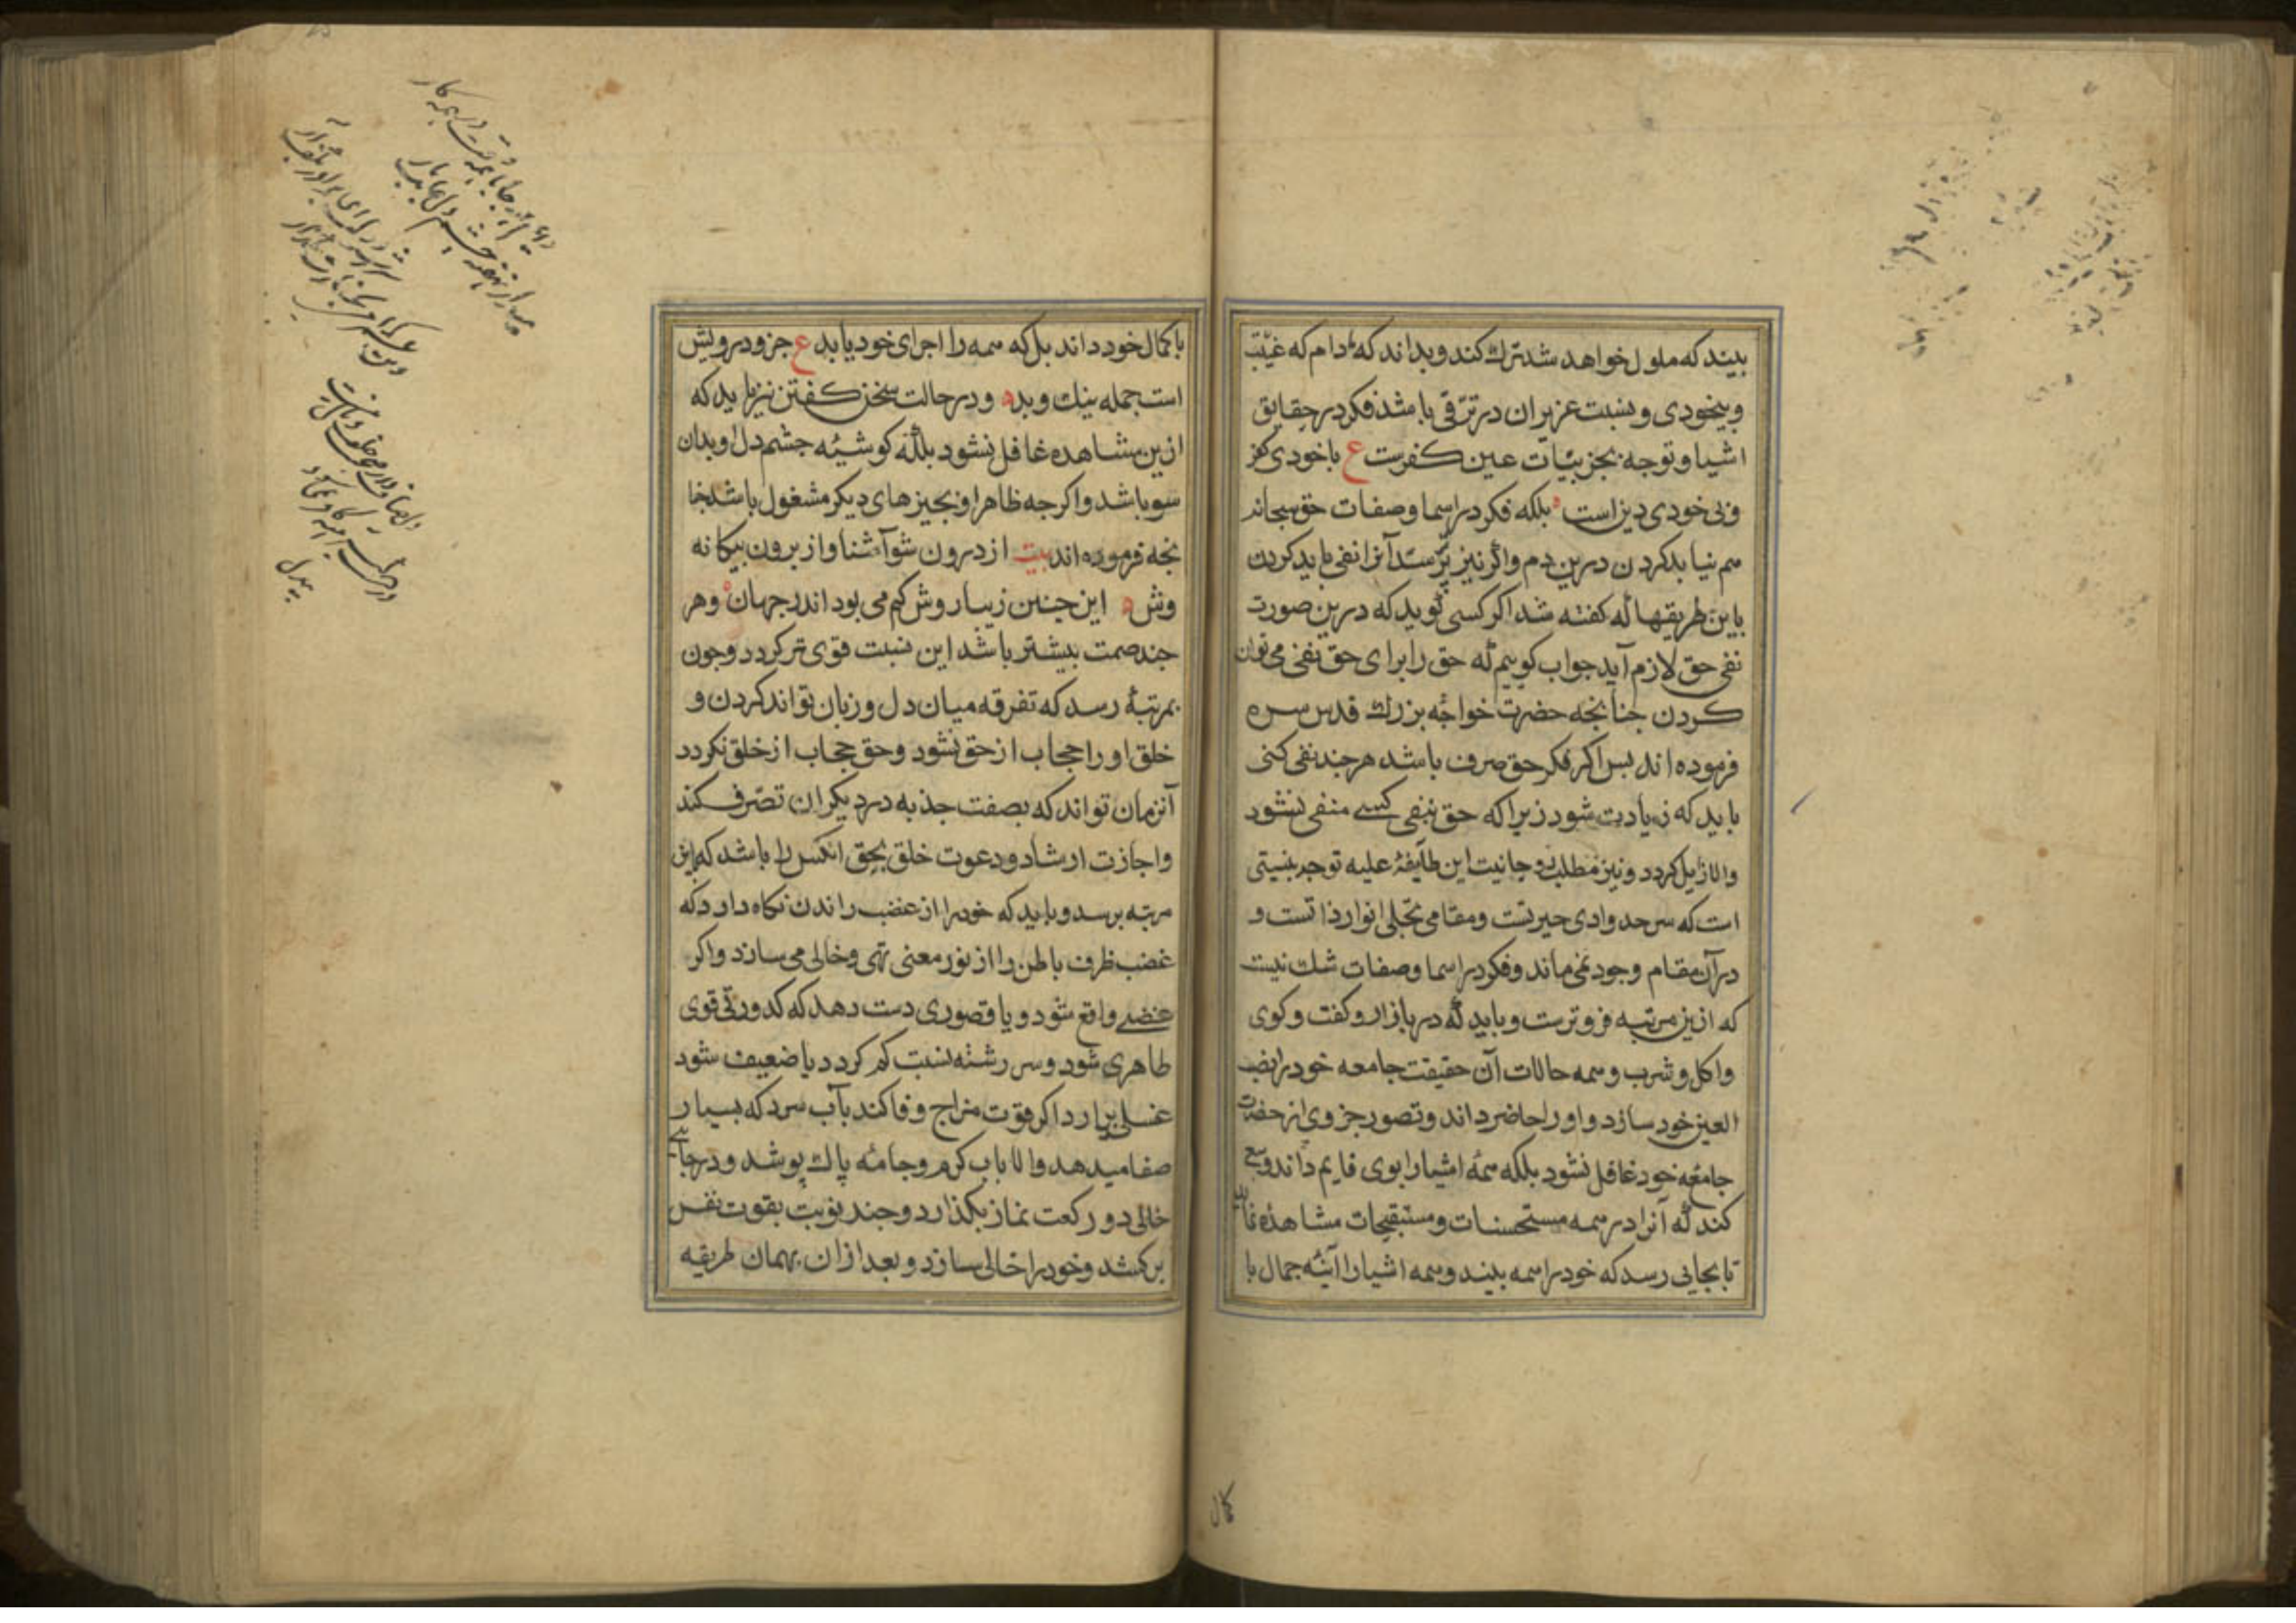 بیند که ملول خواهد شد ترک کند و بداند که مادام که غیبت
و بیخودی و نسبت عزیزان در ترقی باشد فکر در حقایق
اشیا و توجه بجزئیات عین کفرست ع با خودی کفر
و بی خودی دین است بلکه فکر در اسما و صفات حق سبحانه
هم نیاید کردن درین دم و اگر نیز پرستد آنرا نفی باید کردن
باین طریقها که کفته شد اکر کسی کوید که درین صورت
نفی حق لازم آید جواب کوییم که حق را برای حق نفی می توان
کردن جنانجه حضرت خواجه بزرك قدس سره
فرموده اند بس اکر فکر حق صرف باشد هر جند نفی کنی
باید که زیادت شود زیرا که حق بنفی کسی منفی نشود
والا زیل کردد و نیز مطلب روحانیت این طایفهٔ علیه توجه بنیستی
است که سرحد وادی حیرتست و مقامی تجلی انوار ذاتست و
در آن مقام وجود نمی ماند و فکر در اسما و صفات شك نیست
که ازین مرتبه فروترست و باید که در بازار و کفت و کوی
و اکل و شرب و همه حالات آن حقیقت جامعه خود را نصب
العین خود سازد و او را حاضر داند و تصور جزوی از حضرت
جامعه خود غافل نشود بلکه همه اشیا را بوی قایم داند و سعی
کند که آنرا در همه مستحسنات و مستقبحات مشاهده نماید
تا بجایی رسد که خود را همه بیند و همه اشیا را آینه جمال با
کمال
باکمال خود داند بل که همه را اجزای خود یابد ع جزو درویش
است جمله نیك و بد و در حالت سخن کفتن نیز باید که
ازین مشاهده غافل نشود بلکه کوشهٔ جشم دل او بدان
سو باشد و اکر جه ظاهرا و بجیزهای دیکر مشغول باشد جنا
نجه فرموده اند بیت از درون شو آشنا و از برون بیکانه
وش این جنین زیبا روش کم می بود اندر جهان و هر
جند صمت بیشتر باشد این نسبت قوی تر کردد و جون
بمرتبهٔ رسد که تفرقه میان دل و زبان تواند کردن و
خلق او را حجاب از حق نشود و حق حجاب از خلق نکردد
آنزمان تواند که بصفت جذبه در دیکران تصرف کند
و اجازت ارشاد و دعوت خلق بحق انکس را باشد که باین
مرتبه برسد و باید که خود را از غضب راندن نکاه دارد که
غضب ظرف باطن را از نور معنی تهی و خالی می سازد و اکر
غضبی واقع شود و یا قصوری دست دهد که کدورتی قوی
طاهری شود و سر رشته نسبت کم کردد یا ضعیف شود
غسلی برارد اکر قوت مزاج وفا کند بآب سرد که بسیار
صفا میدهد والا باب کرم و جامه پاك پوشد و در جای
خالی دو رکعت نماز بکذارد و جند نوبت بقوت نفس
برکشد و خود را خالی سازد و بعد ازان بهمان طریقه